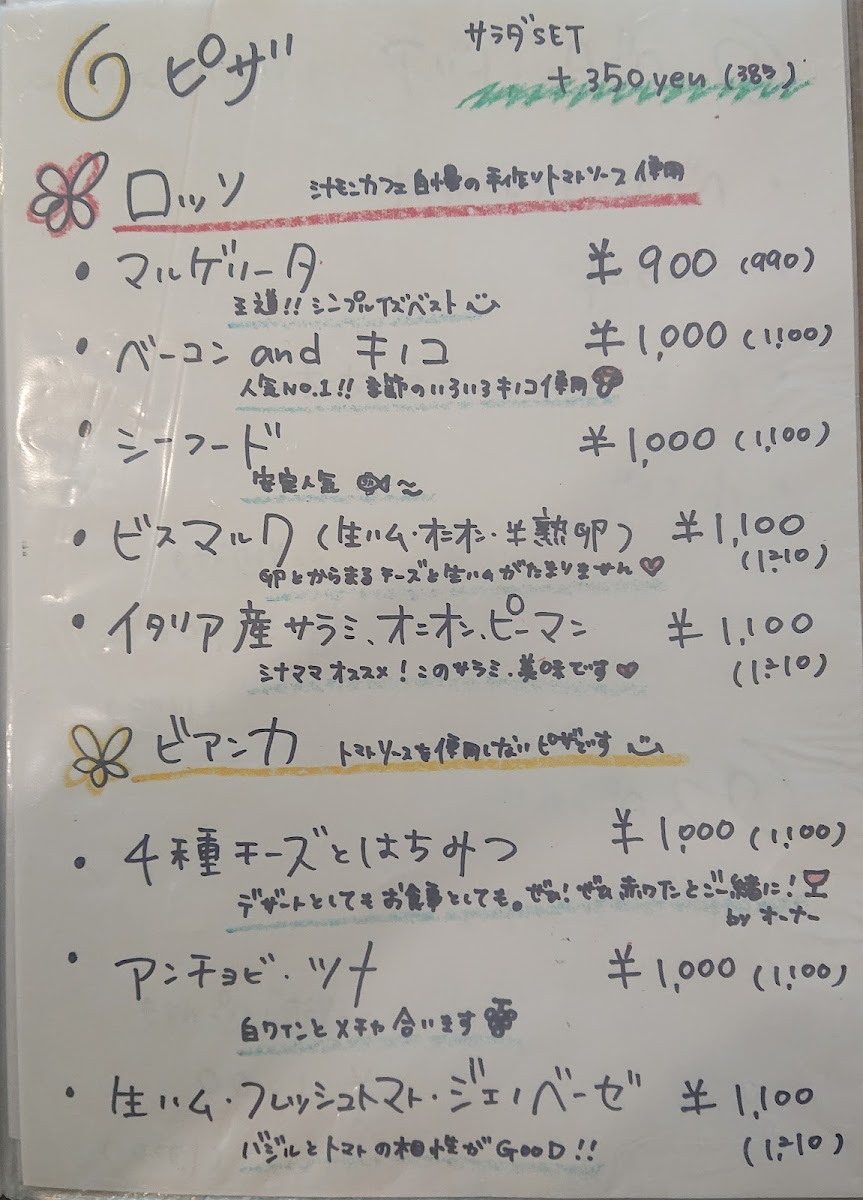 ⑥ ピザ
サラダSET
+350yen(385)
ロッソ シナモンカフェ自慢の手作りトマトソース使用
・マルゲリータ ¥900(990)
王道!! シンプルイズベスト
・ベーコン and キノコ ¥1,000(1,100)
人気NO.1!! 季節のいろいろキノコ使用
・シーフード ¥1,000(1,100)
安定人気
・ビスマルク(生ハム・オニオン・半熟卵) ¥1,100
(1,210)
卵とからまるチーズと生ハムがたまりません
・イタリア産サラミ、オニオン、ピーマン ¥1,100
(1,210)
シナママオススメ!このサラミ、美味です
ビアンカ トマトソースを使用しないピザです
・4種チーズとはちみつ ¥1,000(1,100)
デザートとしてもお食事としても。ぜひ!ぜひ赤ワインとご一緒に!
by オーナー
・アンチョビ・ツナ ¥1,000(1,100)
白ワインとメチャ合います
・生ハム・フレッシュトマト・ジェノベーゼ ¥1,100
(1,210)
バジルとトマトの相性がGOOD!!